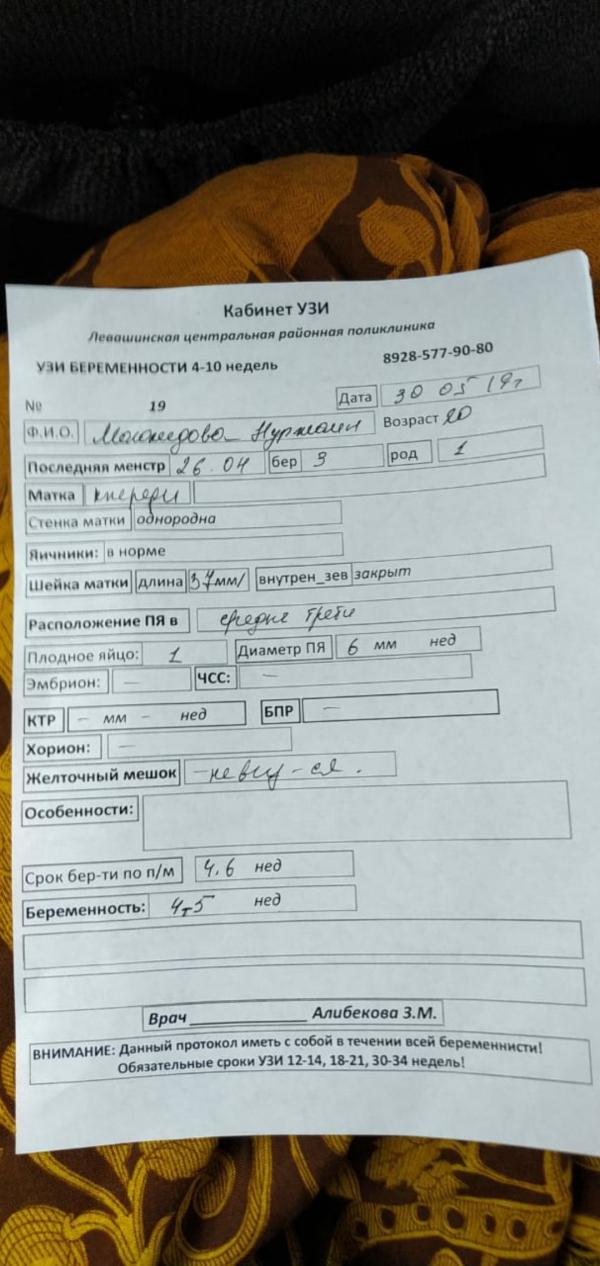 Кабинет УЗИ
Левашинская центральная районная поликлиника
УЗИ БЕРЕМЕННОСТИ 4-10 недель 8928-577-90-80
№ 19 Дата 30 05 19г
Ф.И.О. Возраст 20
Последняя менстр 26.04 бер 3 род 1
Матка кпереди
Стенка матки однородна
Яичники: в норме
Шейка матки длина 37мм/ внутрен_зев закрыт
Расположение ПЯ в средне трети
Плодное яйцо: 1 Диаметр ПЯ 6 мм нед
Эмбрион: — ЧСС: —
КТР – мм – нед БПР —
Хорион: —
Желточный мешок
Особенности:
Срок бер-ти по п/м 4.6 нед
Беременность: 4-5 нед
Врач ____________ Алибекова З.М.
ВНИМАНИЕ: Данный протокол иметь с собой в течении всей беременнисти!
Обязательные сроки УЗИ 12-14, 18-21, 30-34 недель!